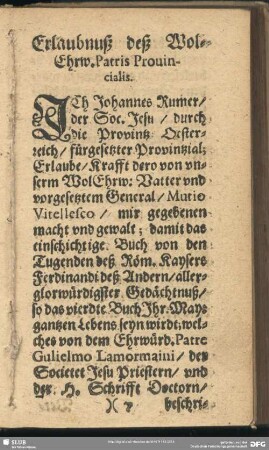 Erlaubnuß deß Wol-
Ehrw. Patris Prouin-
cialis.
ICh Johannes Rumer/
der Soc. Jesu / durch
die Provintz Oester-
reich / fürgesetzter Provintzial;
Erlaube / Krafft dero von vn-
serm WolEhrw: Vatter vnd
vorgesetztem General / Mutio
Vitellesco / mir gegebenen
macht vnd gewalt; damit das
einschichtige Buch von den
Tugenden deß Röm. Kaysers
Ferdinandi deß Andern / aller-
glorwürdigster Gedächtnuß/
so das vierdte Buch Ihr. May:
gantzen Lebens seyn wirdt; wel-
ches von dem Ehrwürd. Patre
Gulielmo Lamormaini / der
Societet Jesu Priestern / vnd
der H. Schrifft Doctorn/
)( v beschri-
SLUB
DFG